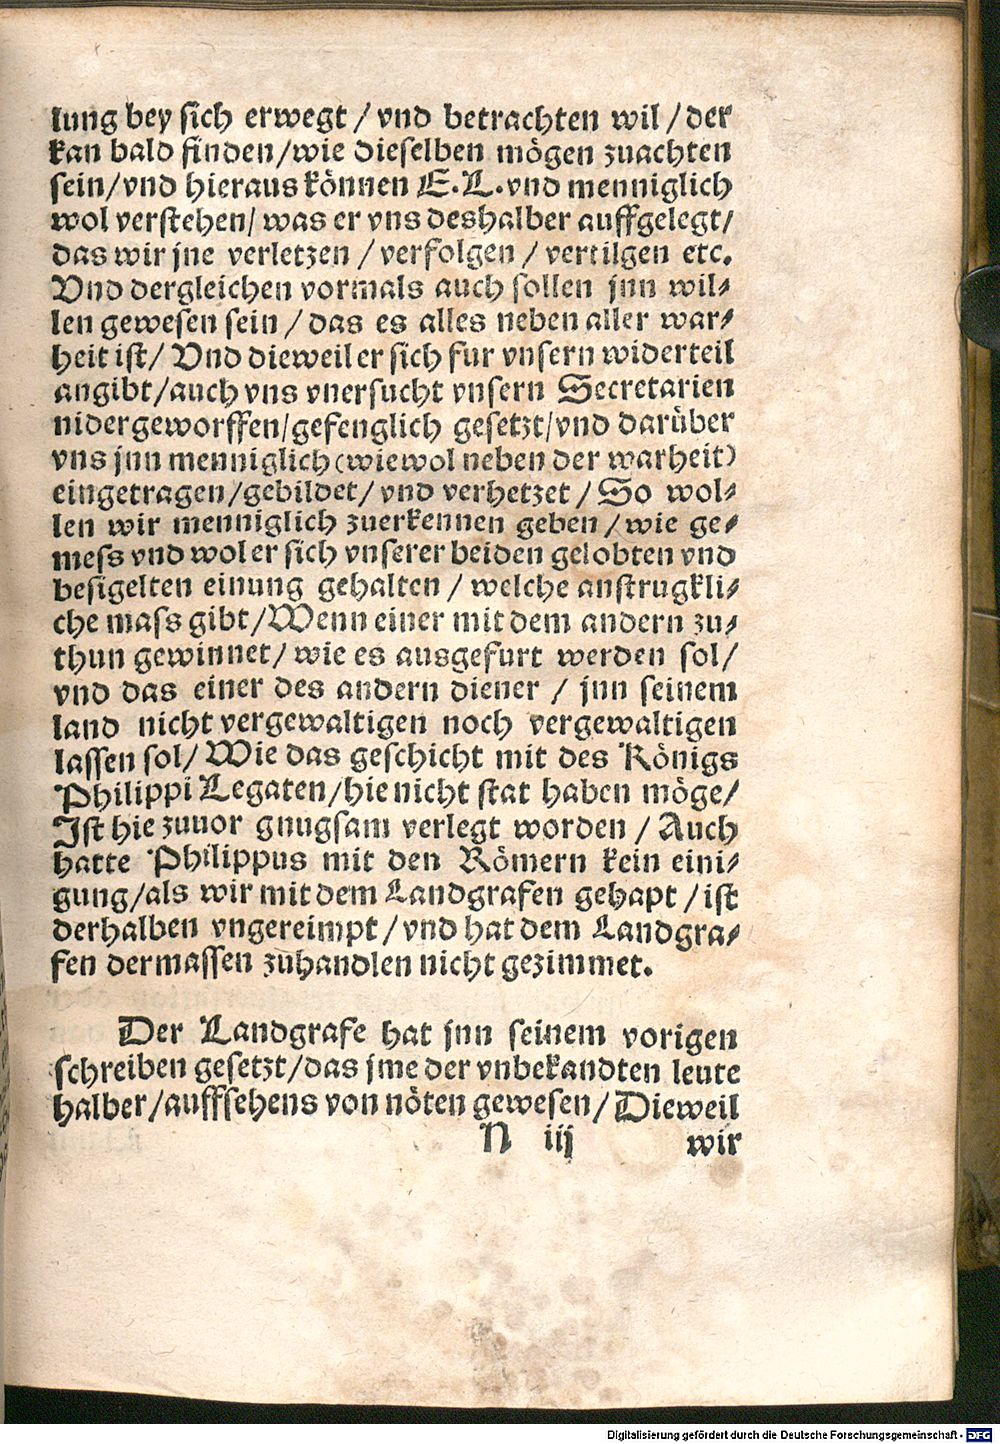 lung bey sich erwegt / vnd betrachten wil / der
kan bald finden / wie dieselben mögen zuachten
sein / vnd hieraus können E. L. vnd menniglich
wol verstehen / was er vns deshalber auffgelegt /
das wir jne verletzen / verfolgen / vertilgen etc.
Vnd dergleichen vormals auch sollen jnn wil⸗
len gewesen sein / das es alles neben aller war⸗
heit ist / Vnd dieweil er sich fur vnsern widerteil
angibt / auch vns vnersucht vnsern Secretarien
nidergeworffen / gefenglich gesetzt / vnd darüber
vns jnn menniglich (wiewol neben der warheit)
eingetragen / gebildet / vnd verhetzet / So wol⸗
len wir menniglich zuerkennen geben / wie ge⸗
mess vnd wol er sich vnserer beiden gelobten vnd
besigelten einung gehalten / welche anstrugkli⸗
che mass gibt / Wenn einer mit dem andern zu⸗
thun gewinnet / wie es ausgefurt werden sol /
vnd das einer des andern diener / jnn seinem
land nicht vergewaltigen noch vergewaltigen
lassen sol / Wie das geschicht mit des Königs
Philippi Legaten / hie nicht stat haben möge /
Ist hie zuuor gnugsam verlegt worden / Auch
hatte Philippus mit den Römern kein eini⸗
gung / als wir mit dem Landgrafen gehapt / ist
derhalben vngereimpt / vnd hat dem Landgra⸗
fen dermassen zuhandlen nicht gezimmet.
Der Landgrafe hat jnn seinem vorigen
schreiben gesetzt / das jme der vnbekandten leute
halber / auffsehens von nöten gewesen / Dieweil
N iij wir
Digitalisierung gefördert durch die Deutsche Forschungsgemeinschaft - DFG